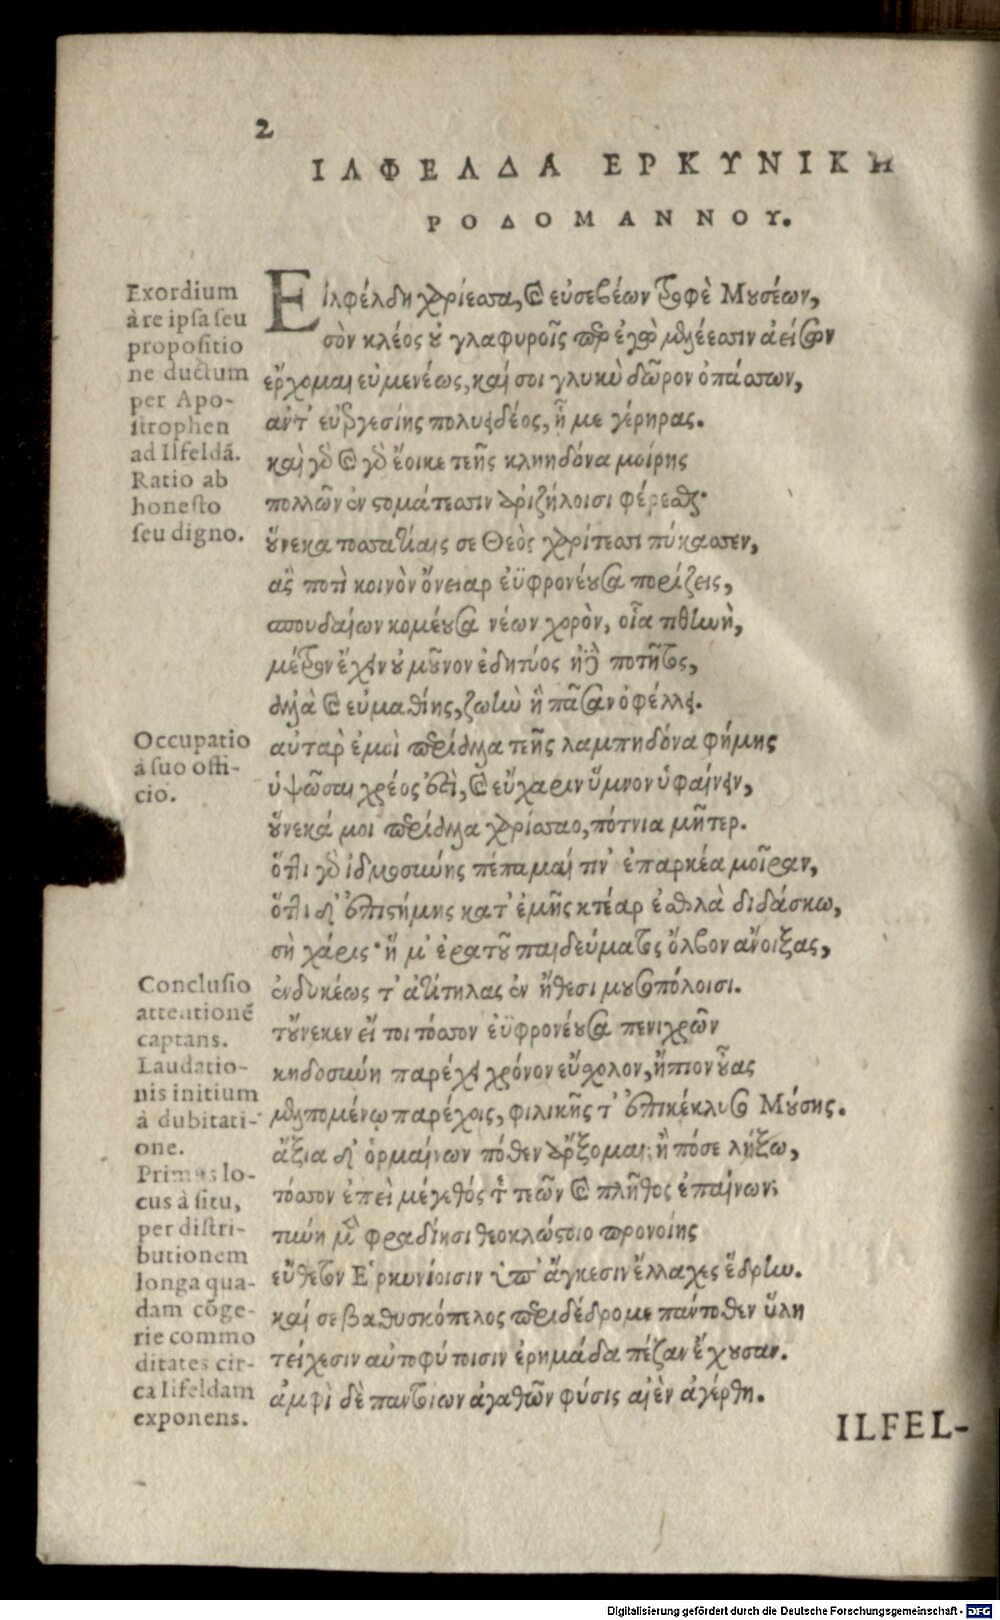 2
ΙΛΦΕΛΔΑ ΕΡΚΥΝΙΚΗ
ΡΟΔΟΜΑΝΝΟΥ.
Exordium
à re ipsa seu
propositio
ne ductum
per Apo-
strophen
ad Ilfeldã.
Ratio ab
honesto
seu digno.
Εἰλφέλδη χαρίεσσα, καὶ εὐσεβέων τροφὲ Μουσέων,
σὸν κλέος οὐ γλαφυροῖς παρ ἐγὼ μελέεσσιν ἀείσων
ἔρχομαι εὐμενέως, καί σοι γλυκὺ δῶρον ὀπάσσων,
ἀντ' εὐεργεσίης πολυειδέος, ᾗ με γέρηρας.
καὶ γὰρ καὶ γὰρ ἔοικε τεῆς κληηδόνα μοίρης
πολλῶν ἐν στομάτεσσιν ἀριζήλοισι φέρεσθαι·
οὕνεκα τοσσατίαις σε Θεὸς χαρίτεσσι πύκασσεν,
ἃς ποτὶ κοινὸν ὄνειαρ ἐϋφρονέουσα πορίζεις,
σπουδαίων κομέουσα νέων χορὸν, οἷα τιθήνη,
μέτρον ἔχειν οὐ μοῦνον ἐδητύος ἠδὲ ποτῆτος,
ἀλλὰ καὶ εὐμαθίης, ζωὴν ἣ πᾶσαν ὀφέλλει.
Occupatio
à suo offi-
cio.
αὐτὰρ ἐμοὶ περίαλλα τεῆς λαμπηδόνα φήμης
ὑψῶσαι χρέος ἐστὶ, καὶ εὔχαριν ὕμνον ὑφαίνειν,
οὕνεκά μοι περίαλλα χαρίσσαο, πότνια μῆτερ.
ὅττι γὰρ ἰδμοσύνης πέπαμαί τιν' ἐπαρκέα μοῖραν,
ὅττι δ' ἐπιστήμης κατ' ἐμῆς κτέαρ ἐσθλὰ διδάσκω,
σὴ χάρις· ἥ μ' ἐρατοῦ παιδεύματος ὄλβον ἀνοίξας,
Conclusio
attentionẽ
captans.
Laudatio-
nis initium
à dubitati-
one.
Primus lo-
cus à situ,
per distri-
butionem
longa qua-
dam cõge-
rie commo
ditates cir-
ca Ilfeldam
exponens.
ἐνδυκέως τ' ἀτίτηλας ἐν ἤθεσι μουσοπόλοισι.
τοὔνεκεν εἴ τοι τόσσον ἐϋφρονέουσα πενιχρῶν
κηδοσύνη παρέχει χρόνον εὔσχολον, ἤπιον οὖας
μελπομένῳ παρέχοις, φιλικῆς τ' ἐπικέκλυσο Μούσης.
ἄξια δ' ὁρμαίνων πόθεν ἄρξομαι; ἢ πόσε λήξω,
τόσσον ἐπεὶ μέγεθός τε τεῶν καὶ πλῆθος ἐπαίνων;
τύνη μὲν φραδίησι θεοκλώστοιο προνοίης
εὔθετον Ἑρκυνίοισιν ὑπ' ἄγκεσιν ἔλλαχες ἕδρην.
καί σε βαθυσκόπελος περιδέδρομε πάντοθεν ὕλη
τείχεσιν αὐτοφύτοισιν ἐρημάδα πέζαν ἔχουσαν.
ἀμφὶ δὲ παντοίων ἀγαθῶν φύσις αἰὲν ἀγέρθη.
ILFEL-
Digitalisierung gefördert durch die Deutsche Forschungsgemeinschaft - DFG